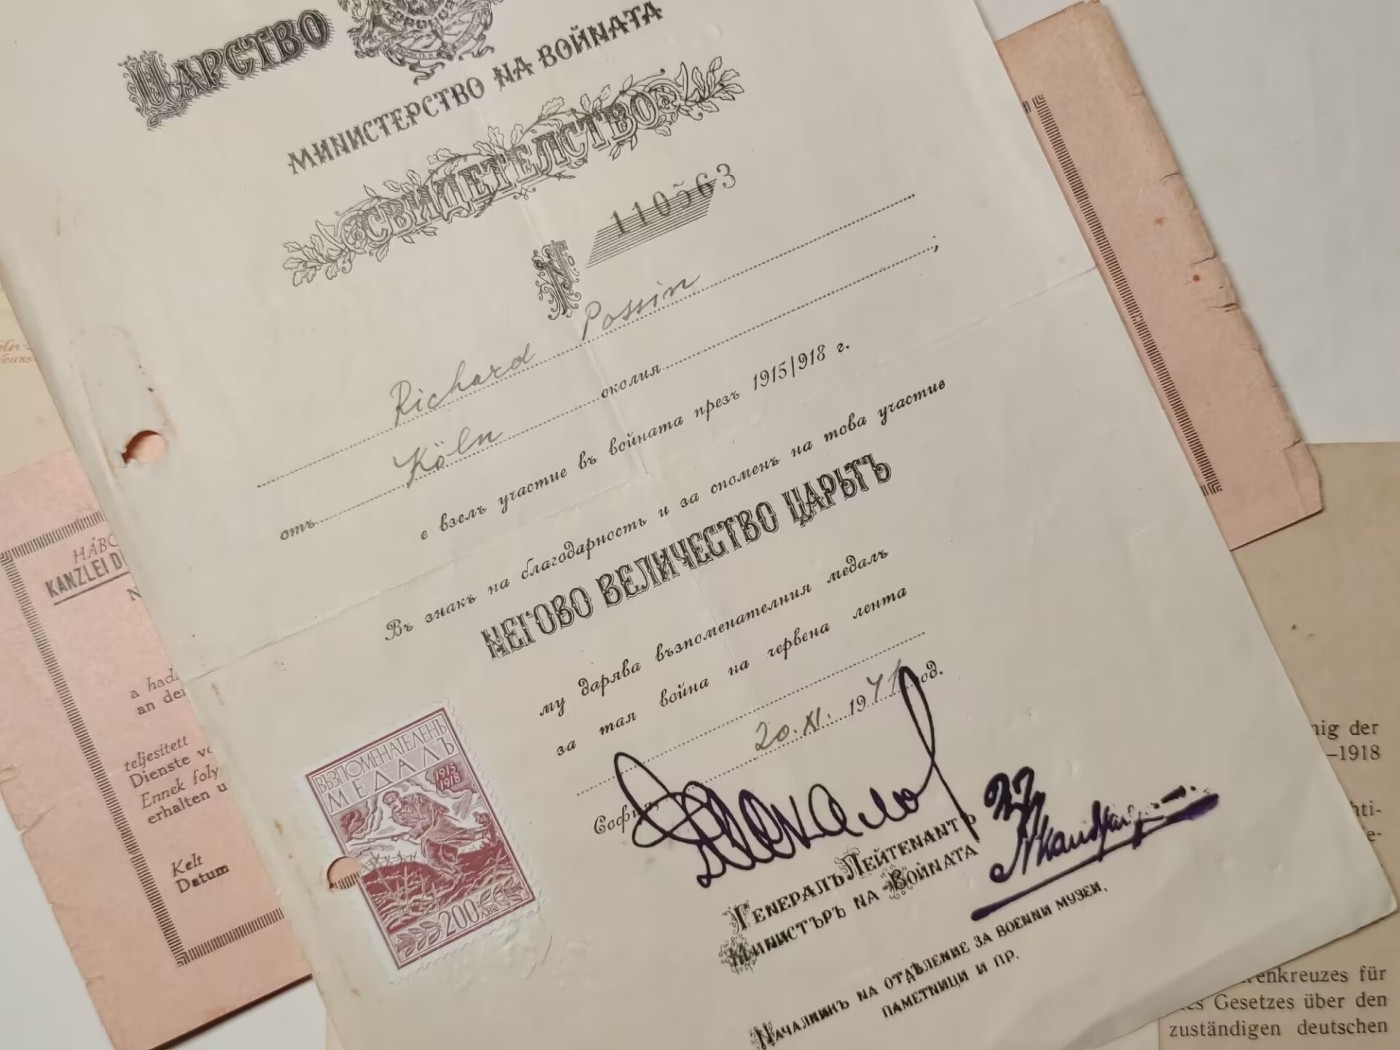 ЦАРСТВО
МИНИСТЕРСТВО НА ВОЙНАТА
СВИДЕТЕЛСТВО
№ 110563
Richard Possin
отъ Köln околия ;
е взелъ участие въ войната презъ 1915/918 г.
Въ знакъ на благодарность и за споменъ на това участие
НЕГОВО ВЕЛИЧЕСТВО ЦАРЬТЪ
му дарява възпоменателния медалъ
за тая война на червена лента
20.XI. 1941 год.
Софи
ГЕНЕРАЛЪ ЛЕЙТЕНАНТЪ
МИНИСТЪРЪ НА ВОЙНАТА
НАЧАЛНИКЪ НА ОТДѢЛЕНИЕ ЗА ВОЕННИ МУЗЕИ,
ПАМЕТНИЦИ И ПР.
ВЪЗПОМЕНАТЕЛЕНЪ
МЕДАЛЪ
1915
1918
200 ЛВ
HÁBO
KANZLEI D
N
a had
an de
teljesített
Dienste vo
Ennek foly
erhalten u
Kelt
Datum
nig der
–1918
hti-
e-
renkreuzes für
es Gesetzes über den
zuständigen deutschen